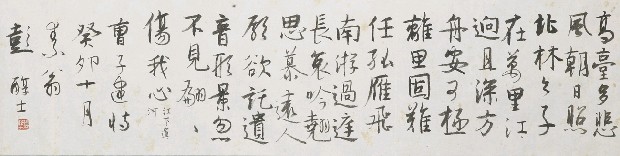 高臺多悲
風朝日照
北林之子
在萬里江
迥且深方
舟安可極
離里固難
任孤雁飛
南游過庭
長哀吟翹
思慕遠人
願欲託遺
音形景忽
不見翩〻
傷我心
江下遺
曹子建詩
癸卯十月
素翁
彭醇士